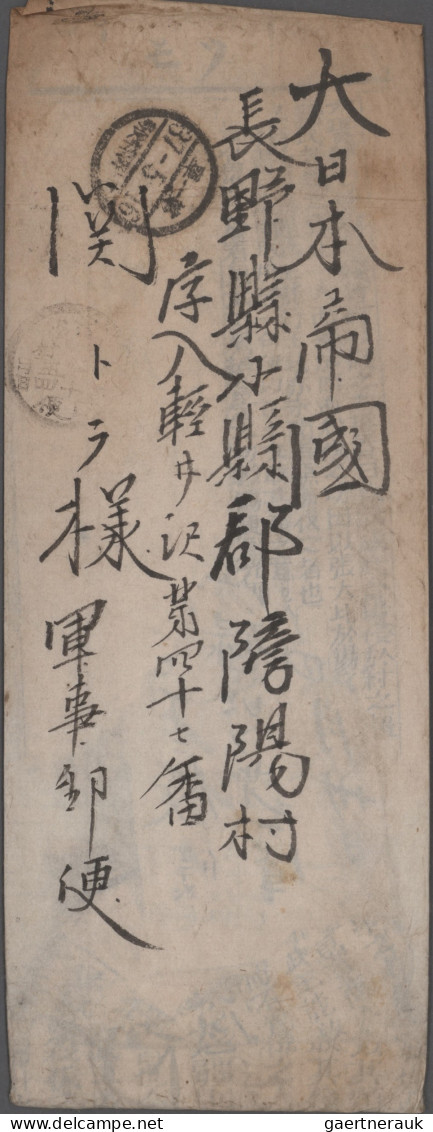 大日本帝國
長野縣小縣郡傍陽村
字入輕井沢第四十七番
関トラ様
軍事郵便
37-5-
gaertnerauk